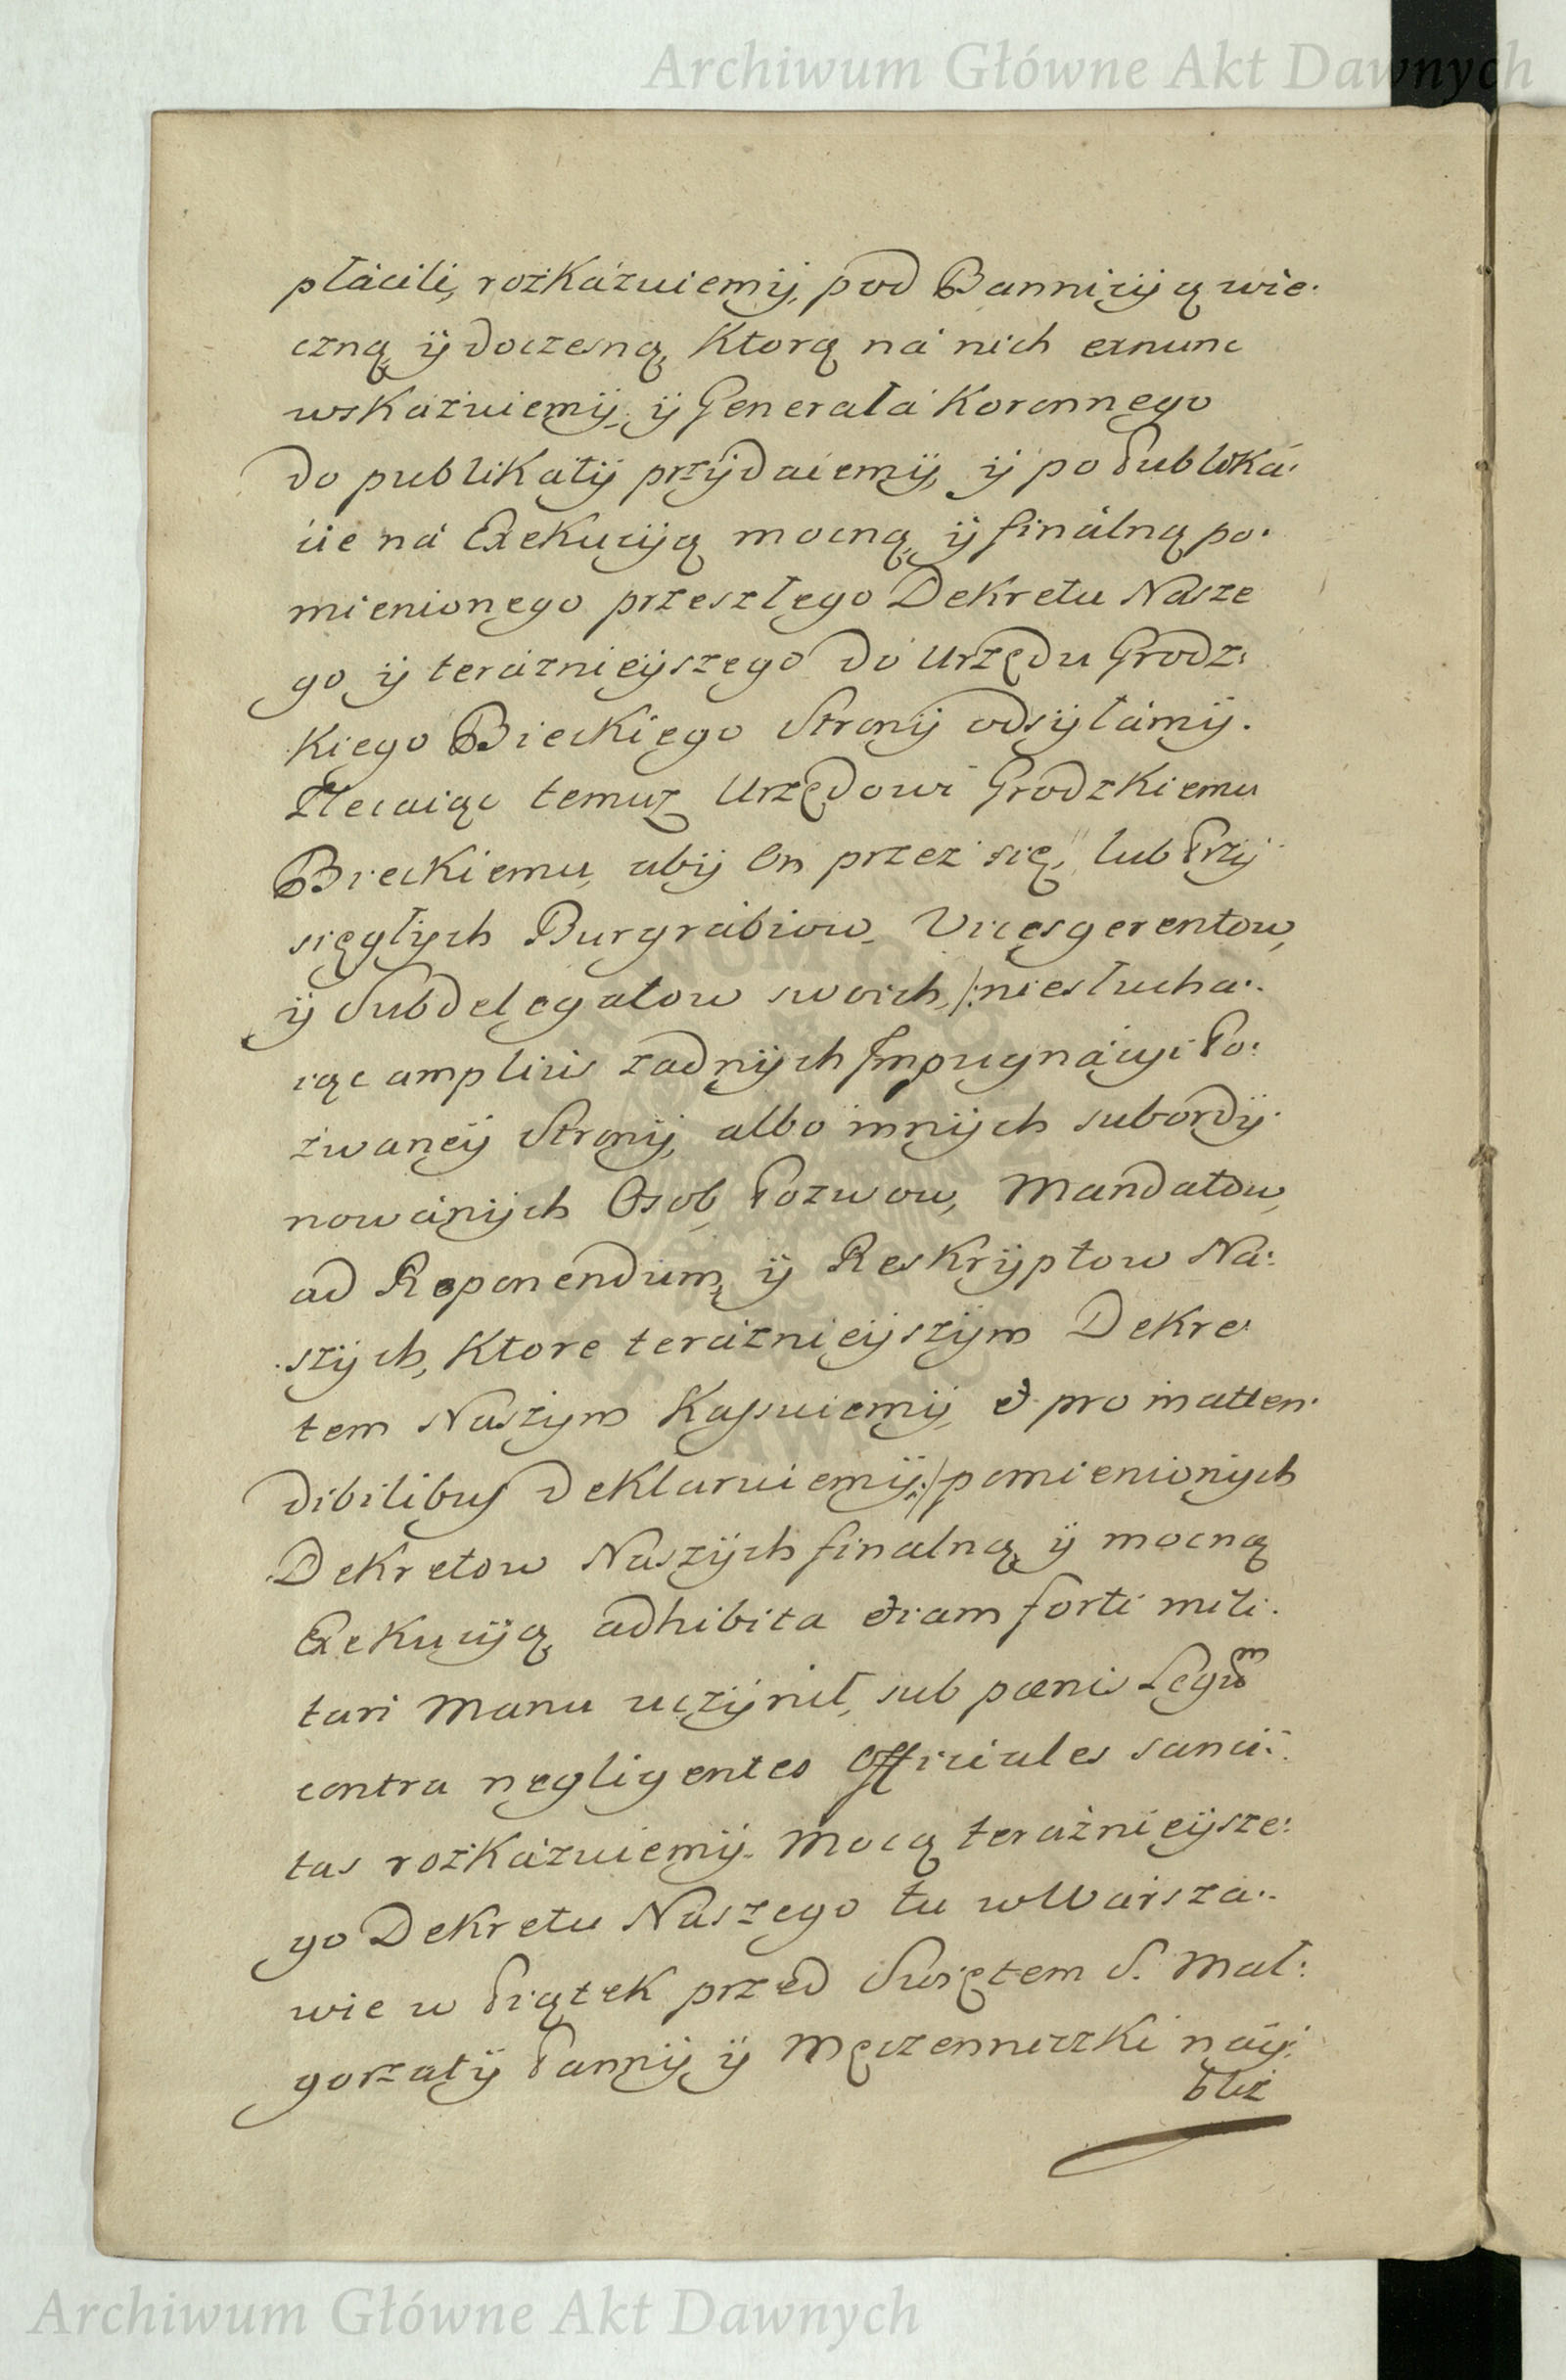 Archiwum Główne Akt Dawnych
płácili, rozkázuiemÿ, pod Bannicÿą wie:
czną, ÿ doczesną, Ktorą ná nich exnunc
wskázuiemÿ, ÿ Generałá Koronnego
do publikátÿ przÿdaiemÿ, ÿ po Publiká:
cie ná Exekucÿą mocną, ÿ finálną po:
mienionego przeszłego Dekretu Nasze
go, ÿ teráznieÿszego do Urzędu Grodz:
kiego Bieckiego Stronÿ odsÿłámÿ.
Zlecaiąc temuz Urzędowi Grodzkiemu
Bieckiemu, abÿ On przez się, lub Przÿ
sięgłÿch Burgrábiow, Vicesgerentow,
ÿ Subdelegatow swoich, /: niesłucha:
iąc amplius zadnÿch Impugnácÿi Po:
zwaneÿ Stronÿ, albo innÿch subordÿ
nowánÿch Osob, Pozwow, Mandatow,
ad Reponendum, ÿ Reskrÿptow Ná:
szÿch, Ktore teráznieÿszÿm Dekre:
tem Naszÿm Kassuiemÿ, & pro inatten:
dibilibus deklaruiemÿ :/ pomienionÿch
Dekretow Naszÿch finalną, ÿ mocną
Exekucÿą, adhibita etiam forti mili:
tari Manu uczÿnił, sub pœnis Legum
contra negligentes Officiales sanci:
tas rozkázuiemÿ. Mocą teráznieÿsze:
go Dekretu Naszego tu w Warsza:
wie w Piątek przed Swiętem S. Mał:
gorzatÿ Pannÿ, ÿ Męczenniczki náÿ:
bliz
Archiwum Główne Akt Dawnych